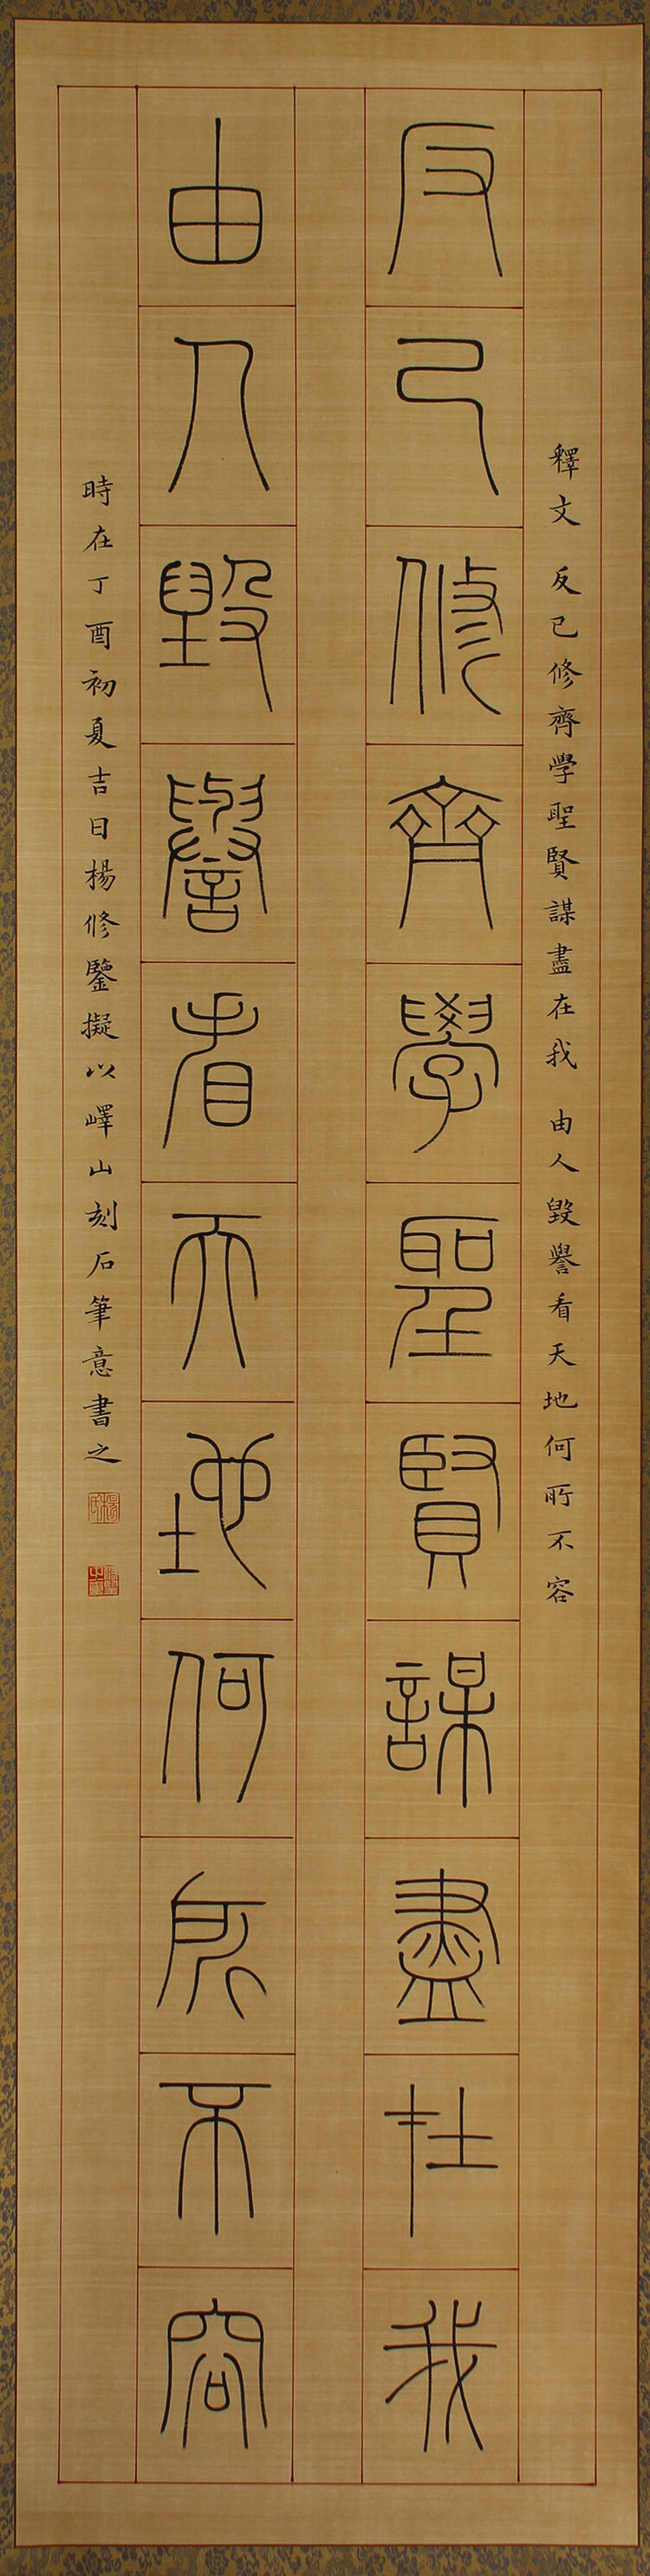 釋文 反己修齊學聖賢謀盡在我 由人毀譽看天地何所不容
反己修齊學聖賢謀盡在我
由人毀譽看天地何所不容
時在丁酉初夏吉日楊修鑒擬以嶧山刻石筆意書之